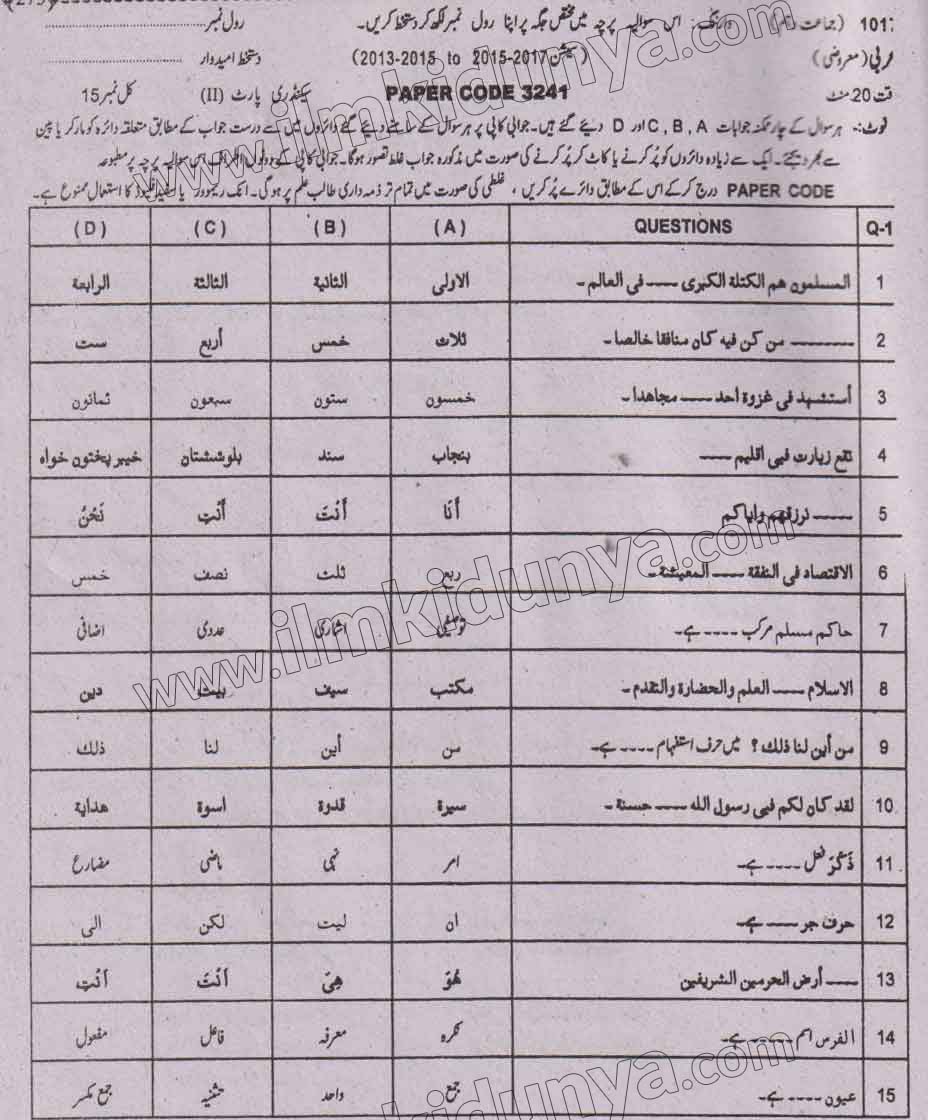 رول نمبر ........................ وارننگ: اس سوالیہ پرچہ میں مختص جگہ پر اپنا رول نمبر لکھ کر دستخط کریں۔ (جماعت دہم) 101
دستخط امیدوار ........................ (سیشن 2013-2015 to 2015-2017) عربی (معروضی)
کل نمبر 15 سیکنڈری پارٹ (II) PAPER CODE 3241 قت 20 منٹ
نوٹ:۔ ہر سوال کے چار ممکنہ جوابات A , B , C اور D دیئے گئے ہیں۔ جوابی کاپی پر ہر سوال کے سامنے دیئے گئے دائروں میں سے درست جواب کے مطابق متعلقہ دائرہ کو مارکر یا پین
سے بھر دیجئے۔ ایک سے زیادہ دائروں کو پُر کرنے یا کاٹ کر پُر کرنے کی صورت میں مذکورہ جواب غلط تصور ہوگا۔ جوابی کاپی کے دونوں اطراف اس سوالیہ پرچہ پر مطبوعہ
PAPER CODE درج کرکے اس کے مطابق دائرے پُر کریں ، غلطی کی صورت میں تمام تر ذمہ داری طالب علم پر ہوگی۔ انک ریموور یا سفید فلیوڈ کا استعمال ممنوع ہے۔
Q-1 QUESTIONS (A) (B) (C) (D)
1 المسلمون هم الكتلة الكبرى ---- فى العالم - الاولى الثانية الثالثة الرابعة
2 -------- من كن فيه كان منافقا خالصا - ثلاث خمس أربع ست
3 أستشهد فى غزوة احد ---- مجاهدا - خمسون ستون سبعون ثمانون
4 تقع زيارت فيى اقليم ---- پنجاب سند بلوشستان خيبر پختون خواه
5 ----- نرزقهم واياكم أَنَا أَنْتَ أَنْتِ نَحْنُ
6 الاقتصاد فى النفقة ---- المعيشة - ربع ثلث نصف خمس
7 حاکم مسلم مرکب ---- ہے۔ توصیفی اشاری عددی اضافی
8 الاسلام ---- العلم والحضارة والتقدم - مكتب سيف بيت دين
9 من أين لنا ذلك ؟ میں حرف استفہام ---- ہے۔ من أين لنا ذلك
10 لقد كان لكم فيى رسول الله ---- حسنة - سيرة قدوة اسوة هداية
11 ذَكَرَ فعل ---- ہے۔ امر نہی ماضی مضارع
12 حرف جر ---- ہے۔ ان ليت لكن الى
13 ---- أرض الحرمين الشريفين هُوَ هِىَ اَنْتَ اَنْتِ
14 الفرس اسم ----- ہے۔ نکرہ معرفہ فاعل مفعول
15 عیون ---- ہے۔ جمع واحد تثنیہ جمع مکسر
www.ilmkidunya.com
www.ilmkidunya.com
www.ilmkidunya.com